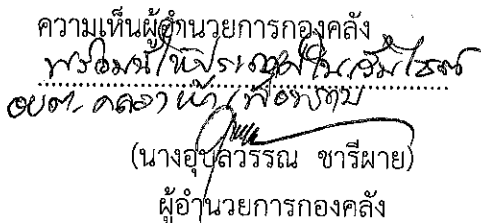 ความเห็นผู้อำนวยการกองคลัง
พร้อมนี้ให้ประกาศในเว็บไซต์
อบต. คลองห้า เพื่อทราบ
(นางอุบลวรรณ ชารีผาย)
ผู้อำนวยการกองคลัง